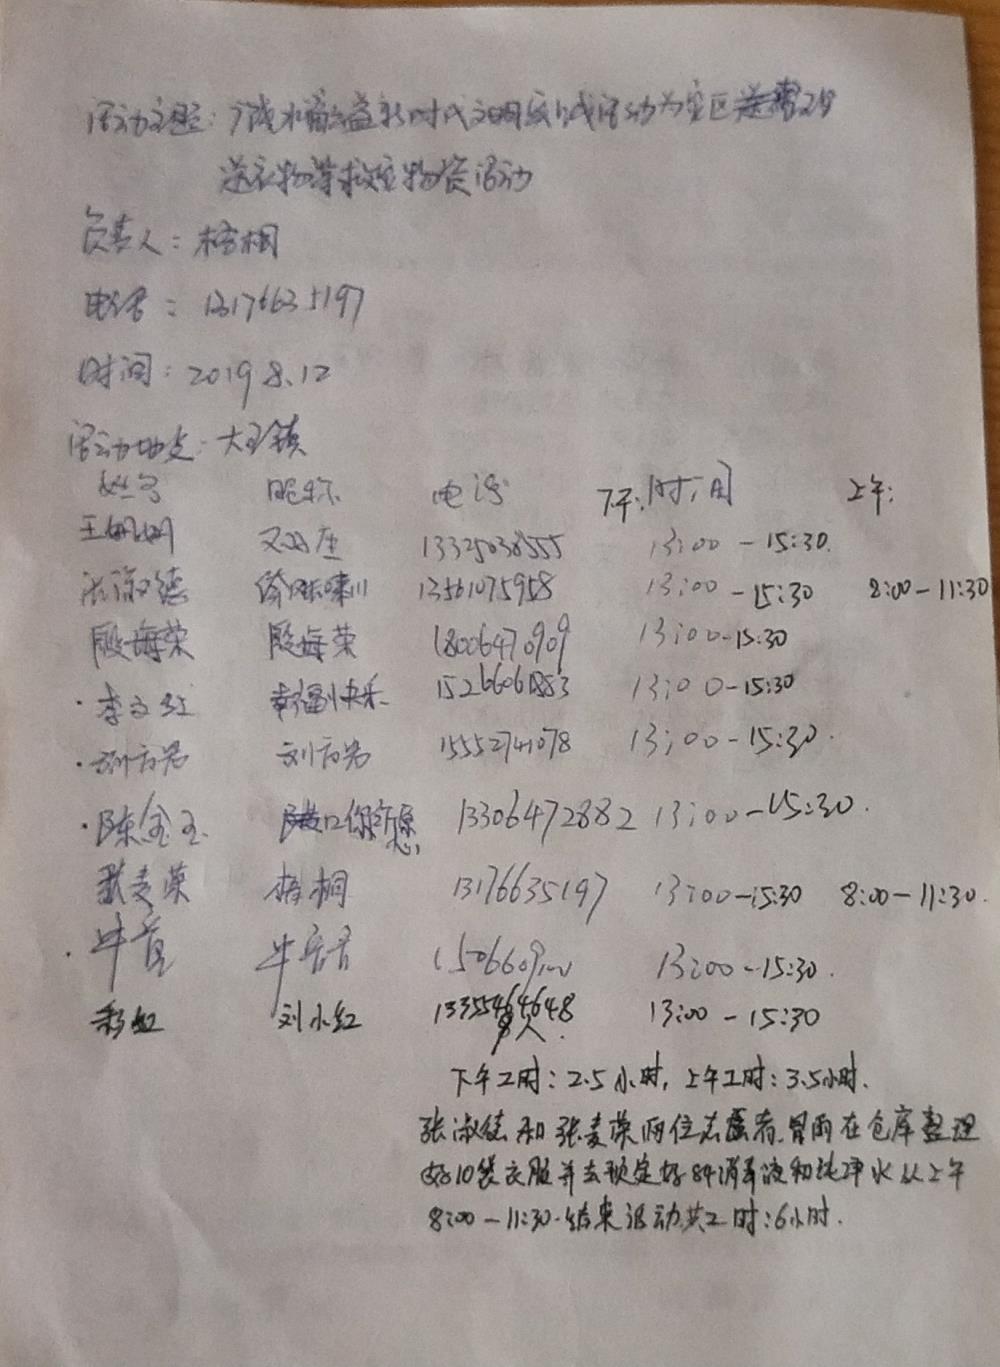 活动主题：广饶水韵公益新时代文明实践活动为灾区
送衣物等救灾物资活动
负责人：梧桐
电话：13176635197
时间：2019 8.12
活动地点：大王镇
姓名 昵称 电话 下午：时间 上午：
13325038555 13:00-15:30
张淑德 13561075958 13:00-15:30 8:00-11:30
殷海荣 殷海荣 18006470909 13:00-15:30
李文红 幸福快乐 13:00-15:30
刘方男 刘方男 15552741078 13:00-15:30
陈金玉 13306472882 13:00-15:30
张麦荣 梧桐 13176635197 13:00-15:30 8:00-11:30
13:00-15:30
彩虹 刘小红 13355464648 13:00-15:30
9人.
下午工时：2.5小时，上午工时：3.5小时.
张淑德和张麦荣两位志愿者冒雨在仓库整理
好10袋衣服并去预定好84消毒液和纯净水从上午
8:00-11:30.结束活动共工时：6小时.